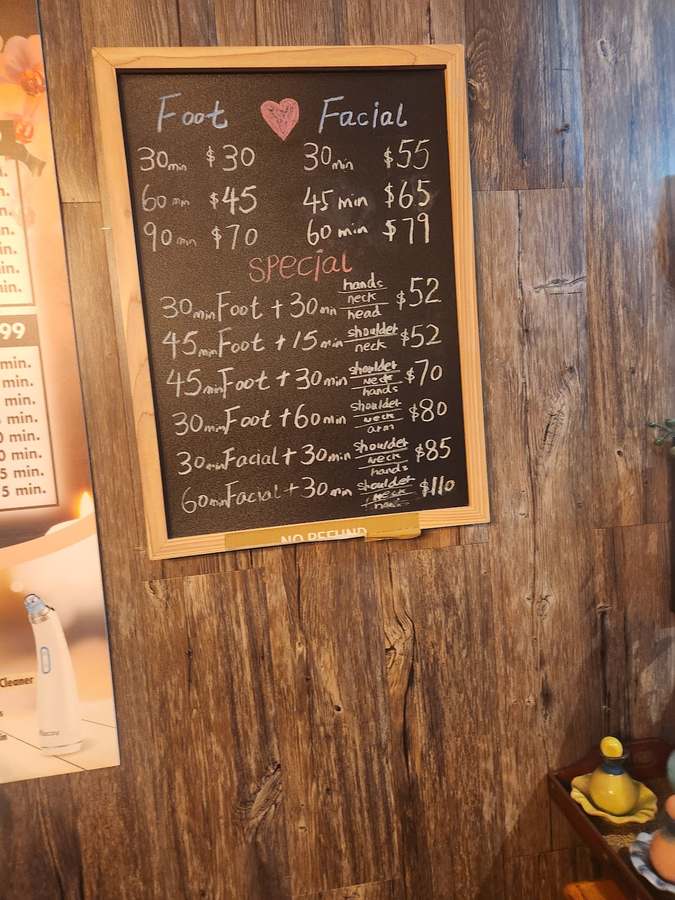 Foot ♥ Facial
30min $30 30min $55
60min $45 45min $65
90min $70 60min $79
Special
30min Foot + 30min hands neck head $52
45min Foot + 15min shoulder neck $52
45min Foot + 30min shoulder neck hands $70
30min Foot + 60min shoulder neck arm $80
30min Facial + 30min shoulder neck hands $85
60min Facial + 30min shoulder neck $110
NO REFUND
99
min.
min.
min.
0 min.
5 min.
5 min.
Cleaner